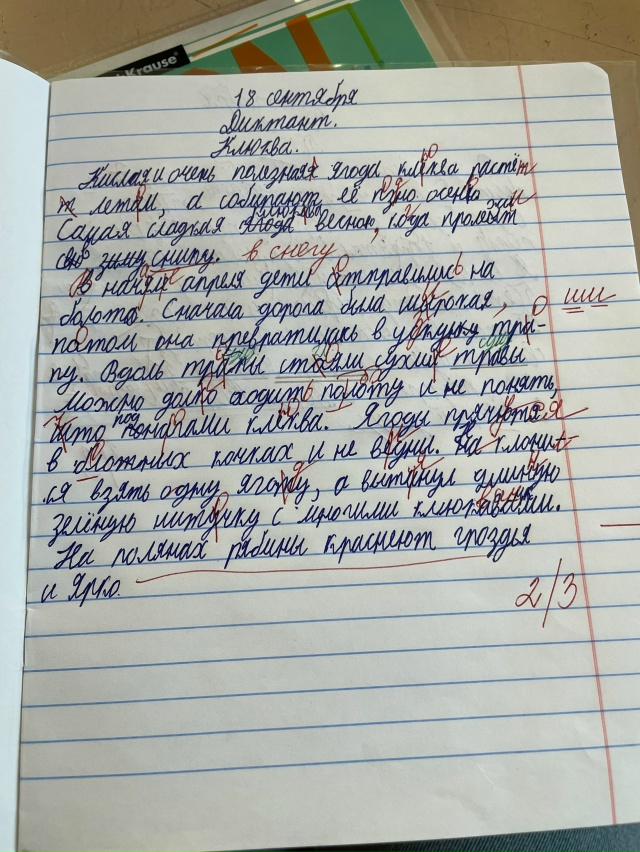 Krause®
18 сентября
Диктант.
Клюква.
Кислая и очень полезная ягода растёт
летом, а собирают её осенью
Самая сладкая ягода клюква весною, пролежит
зиму снигу. в снегу
В апреля дети отправились на
болото. Сначала дорога была широкая, о ши
потом она превратилась в тра-
пу. Вдоль тропы стояли сухии травы
можно долго ходить по и не понять,
что под ногами клеква. Ягоды
в кочках и не видны. На клонит-
ся взять одну ягодку, а вытянул длинную
зелёную ниточку с многими
На полянах рябины краснеют гроздья
и ярко
2/3